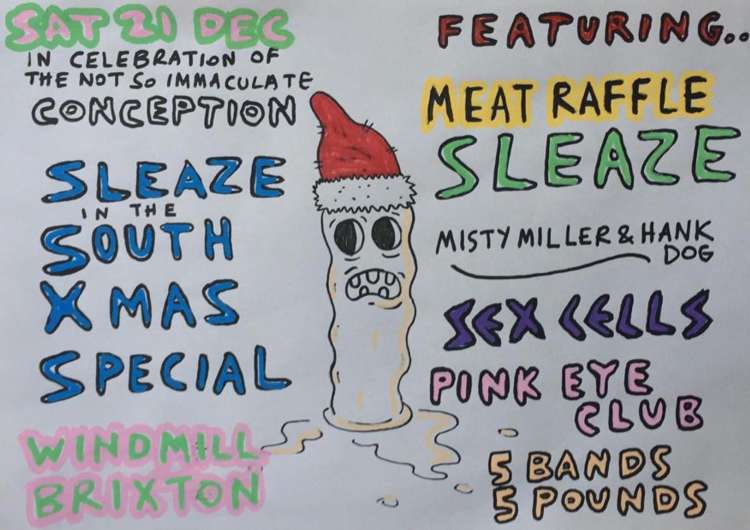 SAT 21 DEC
IN CELEBRATION OF
THE NOT SO IMMACULATE
CONCEPTION
SLEAZE
IN THE
SOUTH
XMAS
SPECIAL
WINDMILL
BRIXTON
FEATURING..
MEAT RAFFLE
SLEAZE
MISTY MILLER & HANK
DOG
SEX CELLS
PINK EYE
CLUB
5 BANDS
5 POUNDS